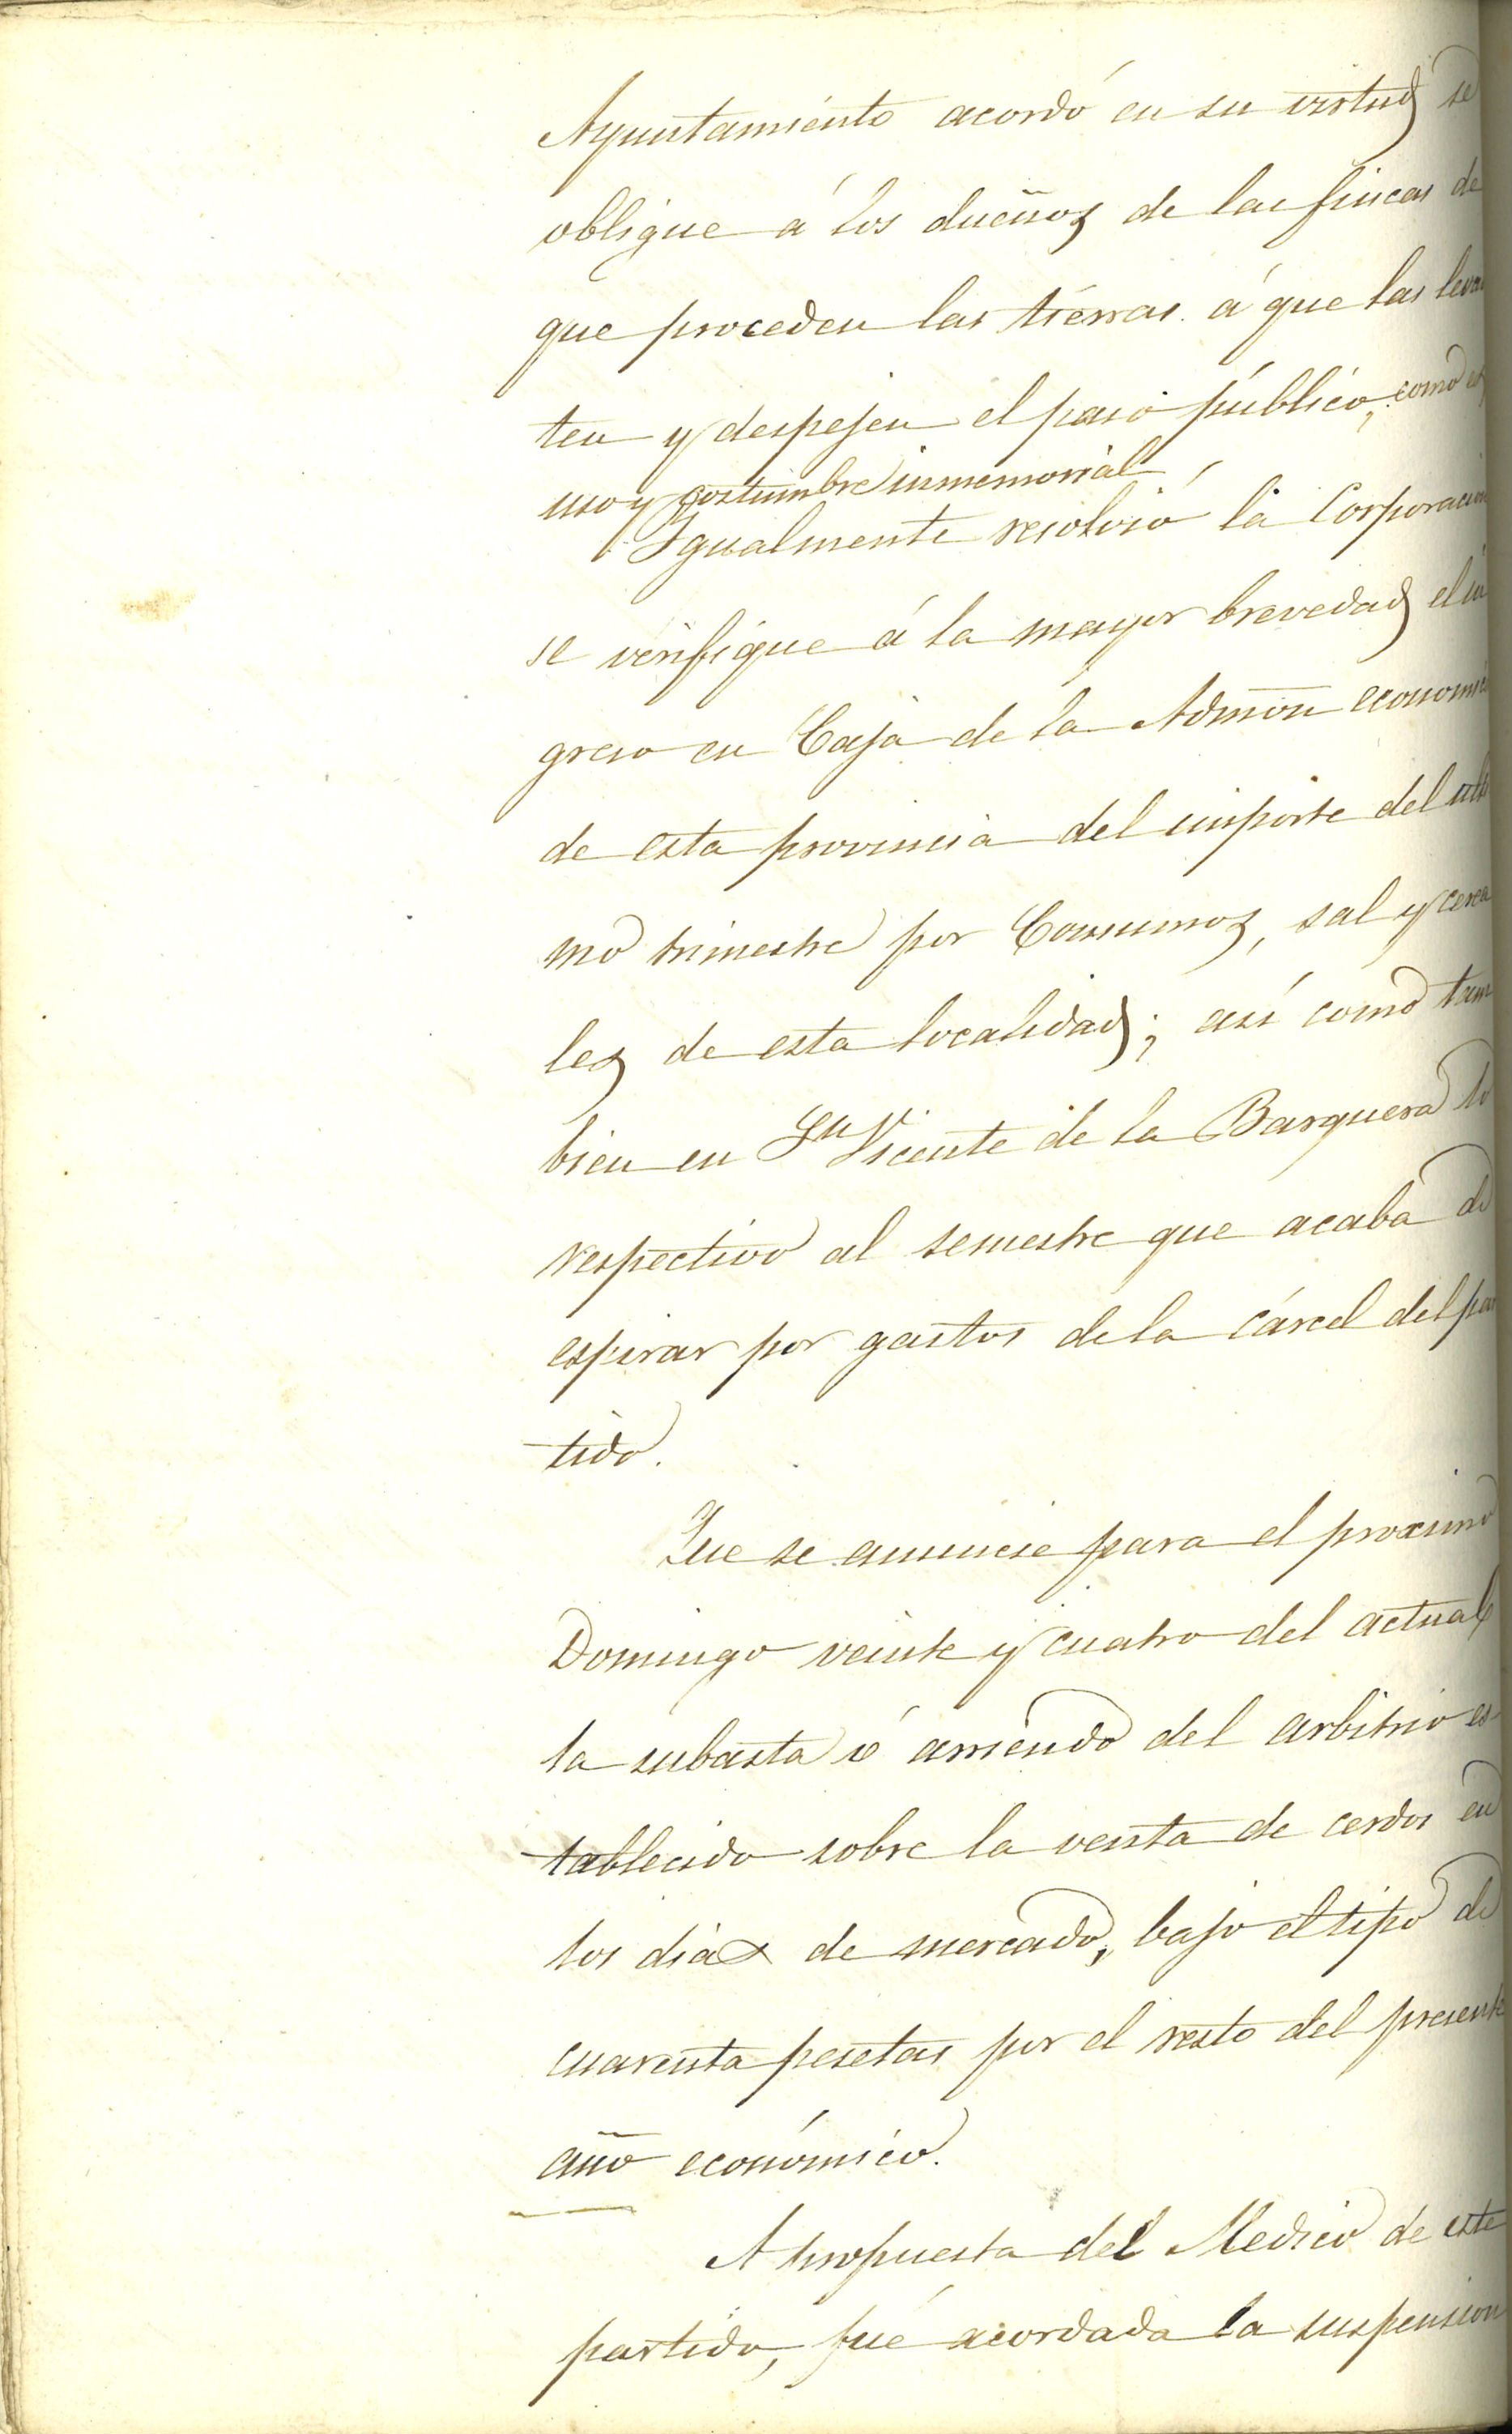 Ayuntamiento acordó en su virtud se
obligue á los dueños de las fincas de
que proceden las tierras á que las levan
ten y despejen el paso público, como es
uso y costumbre inmemorial.
Igualmente resolvió la Corporación
se verifique á la mayor brevedad el in
greso en Caja de la Admōn economica
de esta provincia del importe del ulti
mo trimestre por Consumos, sal y cerea
les de esta localidad; así como tam
bien en Sn Vicente de la Barquera lo
respectivo al semestre que acaba de
espirar por gastos de la cárcel del par
tido.
Que se anuncie para el proximo
Domingo veinte y cuatro del actual
la subasta ó arriendo del arbitrio es
tablecido sobre la venta de cerdos en
los dias de mercado, bajo el tipo de
cuarenta pesetas por el resto del presente
año económico.
A propuesta del Medico de este
partido, fué acordada la suspension